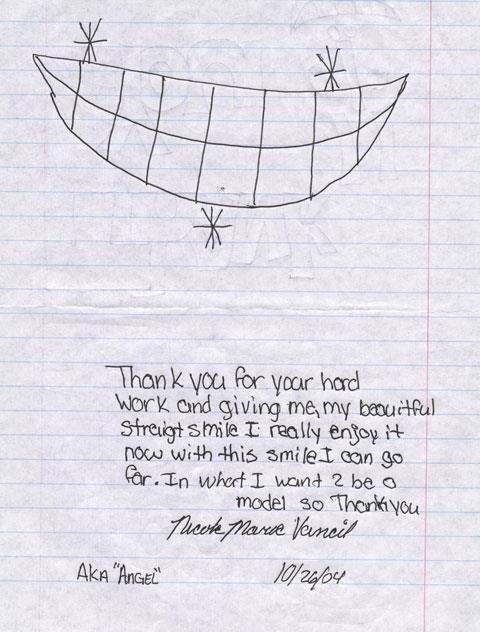 Thank you for your hard
work and giving me, my beauitful
streigt smile I really enjoy it
now with this smile I can go
far. In what I want 2 be a
model so Thankyou
Nicole Marie Vencil
AKA "ANGEL" 10/26/04